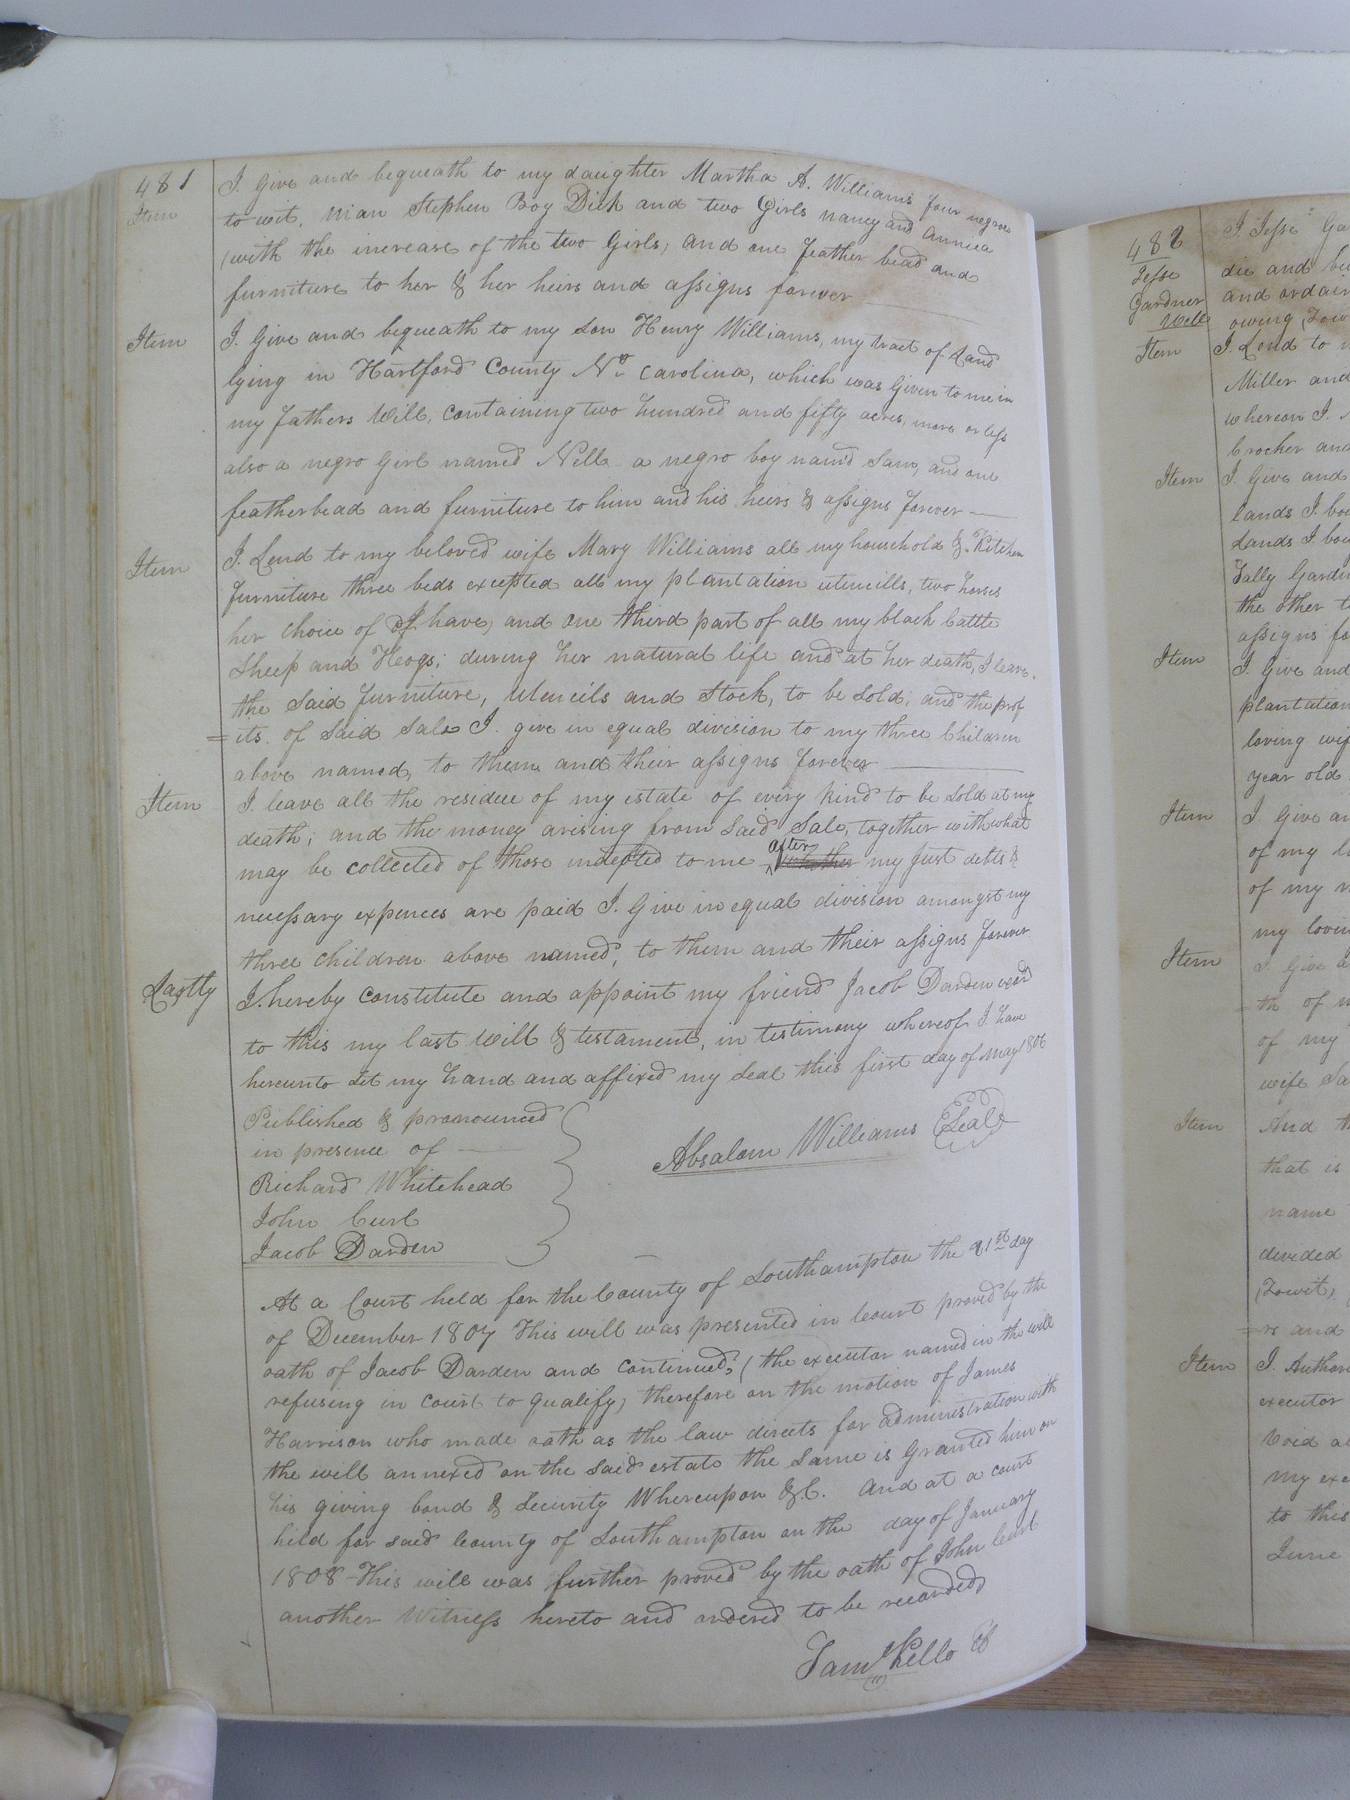 481
Item I Give and bequeath to my daughter Martha A. Williams four negroes
to wit, man Stephen Boy Dick and two Girls nancy and
(with the increase of the two Girls, and one feather bead and
furniture to her & her heirs and assigns forever
Item I Give and bequeath to my son Henry Williams, my tract of Land
lying in Hartford County No Carolina, which was given to me in
my fathers Will, containing two hundred and fifty acres, more or less
also a negro girl named Nell a negro boy namd Sam, and one
featherbead and furniture to him and his heirs & assigns forever
Item I Lend to my beloved wife Mary Williams all my household & Kitchen
furniture three beds excepted all my plantation utencills, two horses
her choice of I have, and one third part of all my black Cattle
Sheep and Heogs; during her natural life and at her death, I leave
the said furniture, utencils and Stock, to be sold; and the prof
=its of said sale I give in equal division to my three Children
above named, to them and their assigns forever
Item I leave all the residue of my estate of every kind to be sold at my
death; and the money arising from said Sale, together with what
may be collected of those indepted to me after my just debts &
necessary expences are paid I Give in equal division amongst my
three children above named, to them and their assigns forever
Lastly I hereby constitute and appoint my friend Jacob Darden
to this my last Will & testament, in testimony whereof I have
hereunto Set my hand and affixed my seal this first day of May 1806
Published & pronounced
in presence of
Absalom Williams Seal
Richard Whitehead
John Curl
Jacob Darden
At a Court held for the County of Southampton the 21st day
of December 1807 This will was presented in Court proved by the
oath of Jacob Darden and continued; (the executor named in the will
refusing in court to qualify, therefore on the motion of James
Harrison who made oath as the law directs for administration with
the will annexed on the said estate the same is Granted him on
his giving bond & security Whereupon &C. And at a court
held for said County of Southampton on the day of January
1808 This will was further proved by the oath of John Curl
another Witness hereto and ordered to be recorded
Saml Kello
482
Jesse
Gardner
Will
I Jesse
die and
and ordain
owing
Item I Lend to
Miller and
whereon I
and
Item I Give and
lands I
Lands I
Sally
the other
assigns
Item I Give and
plantation
loving
year old
Item I Give
of my
of my
my
Item I Give
th of
of my
wife
Item And
that is
name
devided
(Towit,
and
Item I
executor
my
to this
June